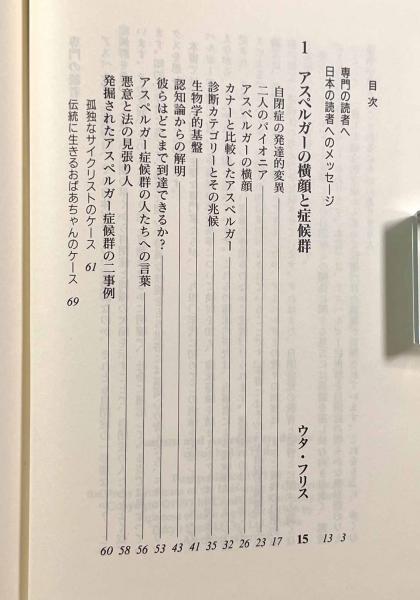 目次
専門の読者へ 3
日本の読者へのメッセージ 13
1 アスペルガーの横顔と症候群 ウタ・フリス 15
自閉症の発達的変異 17
二人のパイオニア 23
アスペルガーの横顔 26
カナーと比較したアスペルガー 32
診断カテゴリーとその兆候 35
生物学的基盤 41
認知論からの解明 43
彼らはどこまで到達できるか? 53
アスペルガー症候群の人たちへの言葉 56
悪意と法の見張り人 58
発掘されたアスペルガー症候群の二事例 60
孤独なサイクリストのケース 61
伝統に生きるおばあちゃんのケース 69